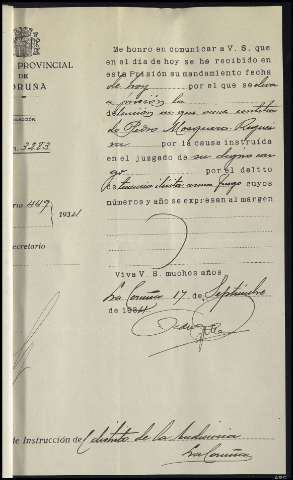 PROVINCIAL
DE
ORUÑA
Me honro en comunicar a V. S. que
en el día de hoy se ha recibido en
esta Prisión su mandamiento fecha
de hoy por el que se eleva
a prisión la
detención en que
de Pedro Mosquera
por la causa instruida
en el juzgado de su digno car
go por el delito
tenencia ilícita arma fuego cuyos
números y año se expresan al margen
n. 3283
449 1934
ecretario
Viva V. S. muchos años
La Coruña 17 de Septiembre
de 1934
de Instrucción del distrito de la Audiencia
La Coruña